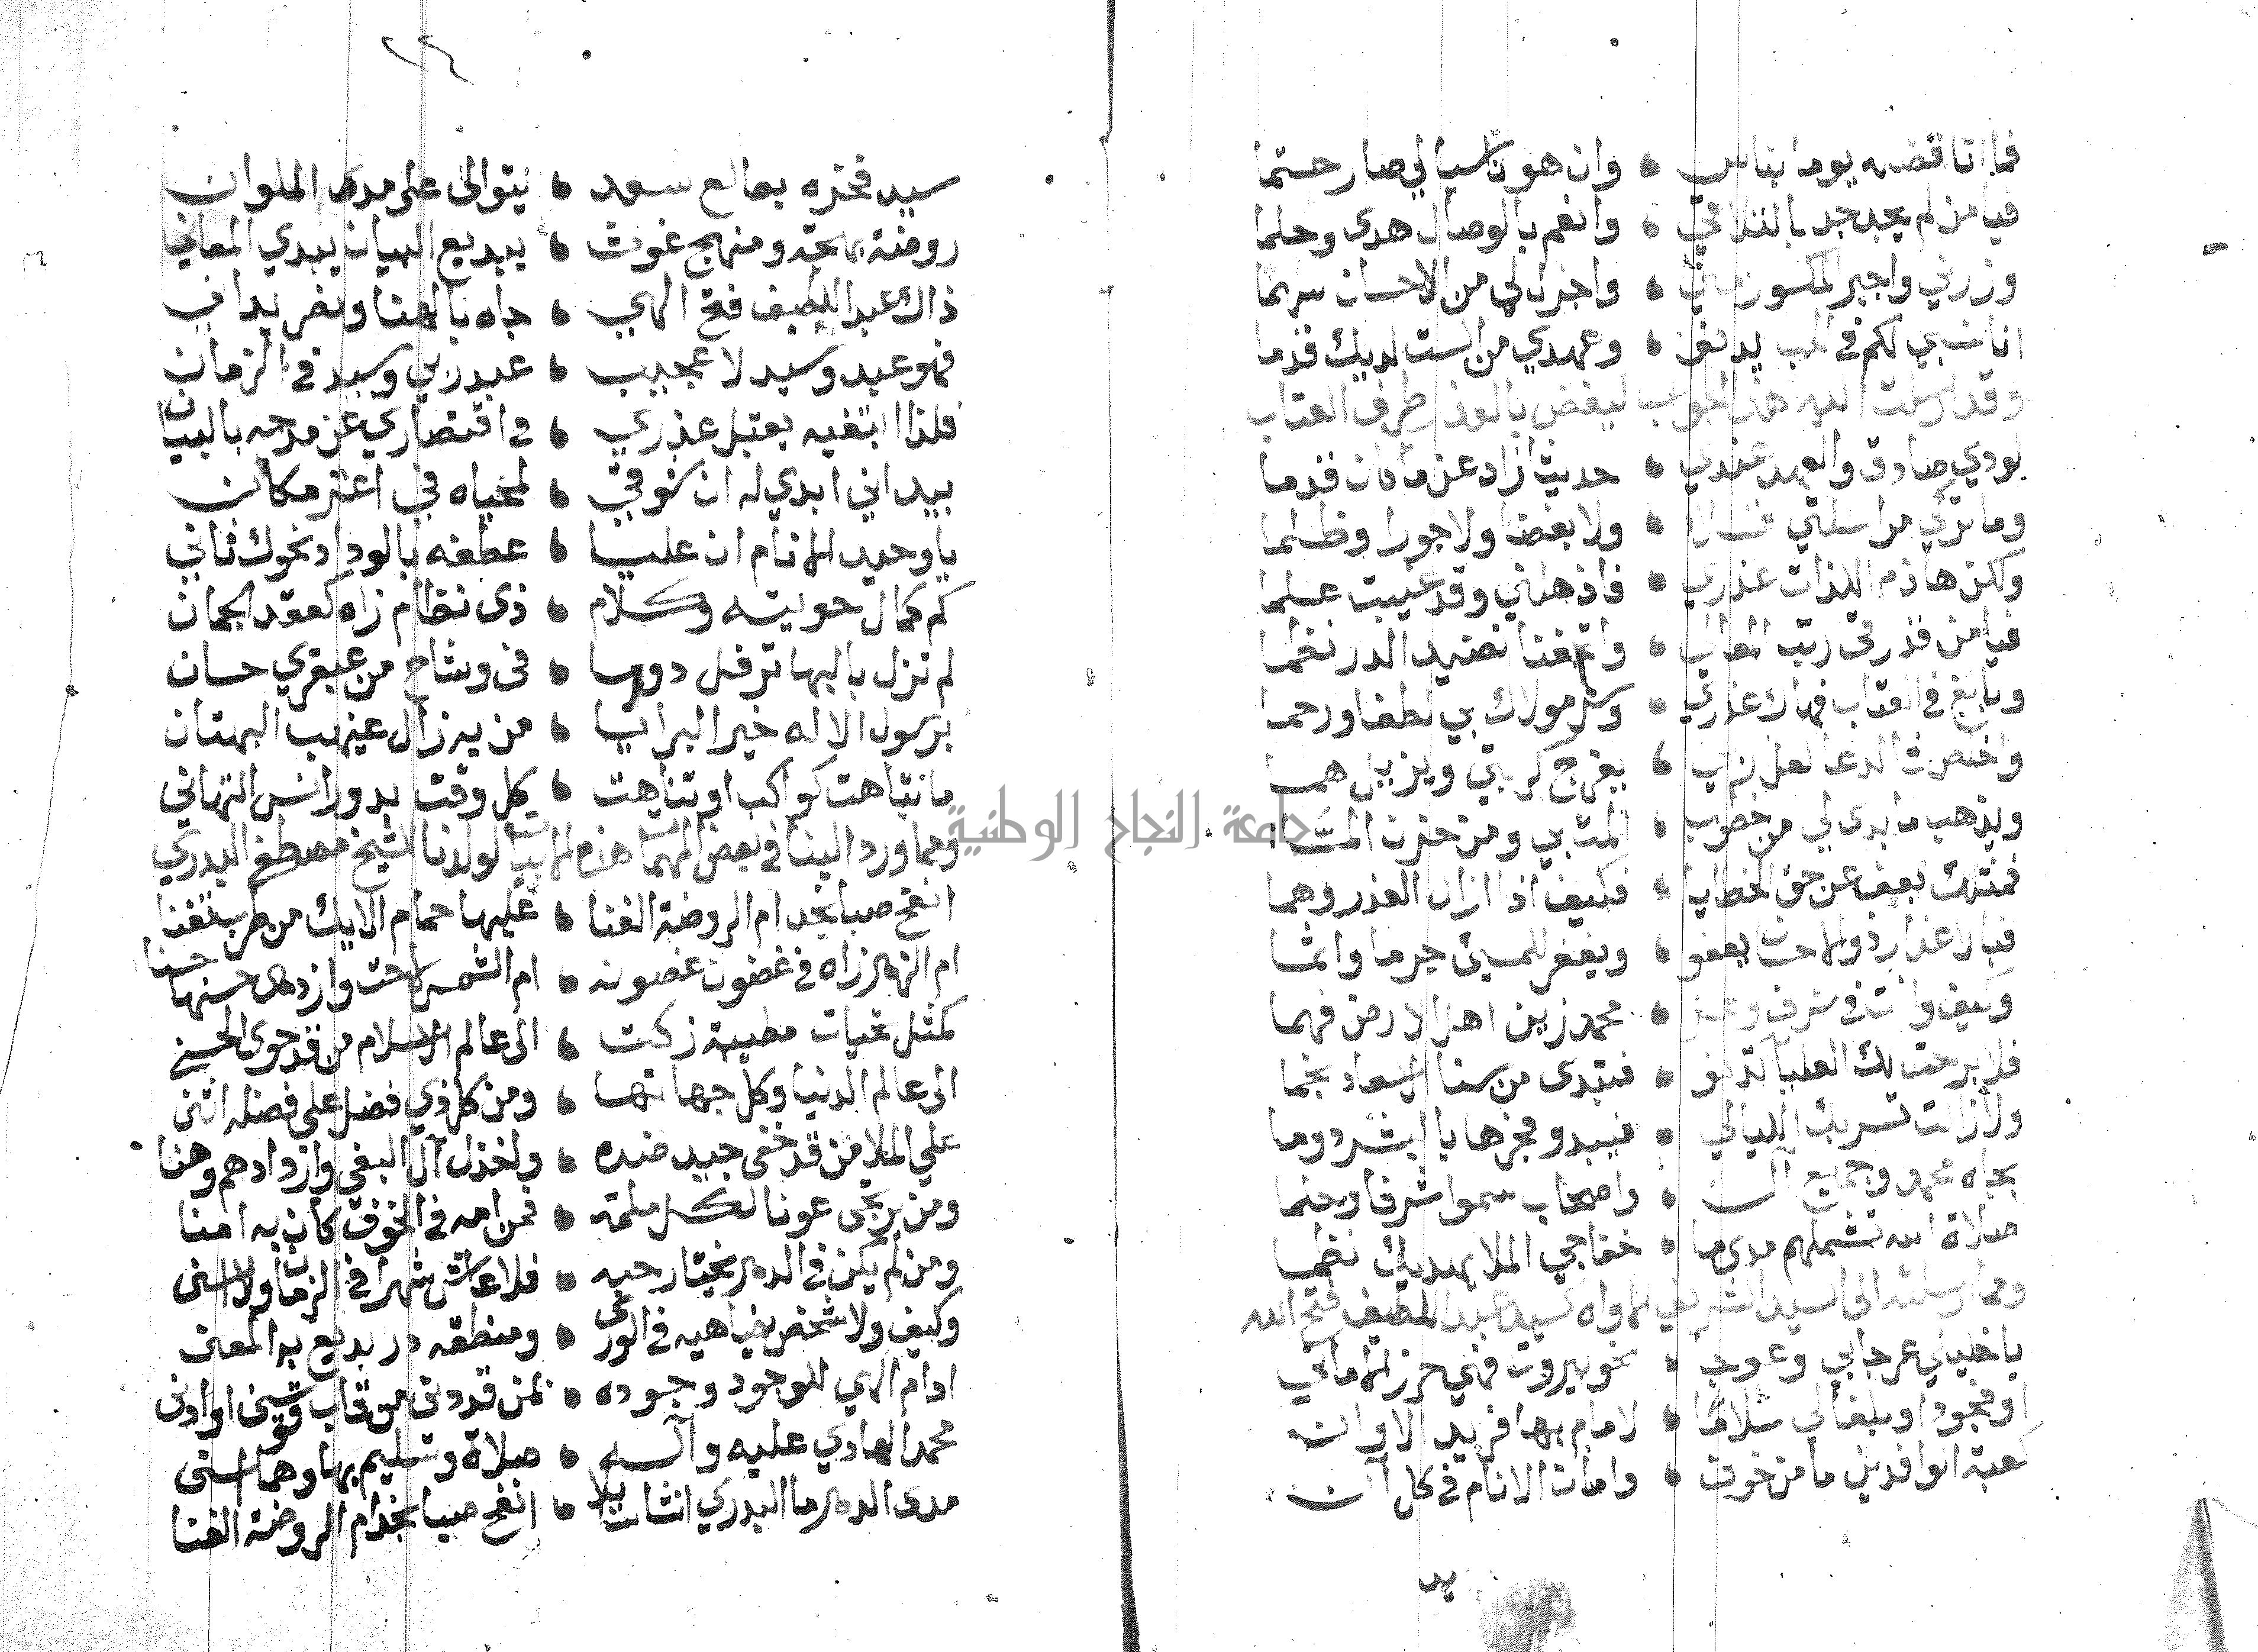 فما انا قضه يوما بناس وان هو ناسيا لي صار حتما
فيا من لم يجد جد بالتلاقي وانعم بالوصال هدى وحلما
وزرني واجبر المكسور مني واجزل لي من الاحسان سهما
لكم في الحب وعهدي من الست لديك قدما
وقد ارسلت اليه هذا الجواب العتاب
لودي صادق والعهد عندي حديث زاد عن ما كان قدما
وما تركي مراسلتي ولا بغضا ولا جورا وظلما
ولكن هاذم اللذات عذري فاذهلني وقد غيبت علما
فيا من قد رقى رتب المعالي واتحفنا نضيد الدر نظما
وبالغ في العتاب فهاك عذري وكن مولاي بي لطفا ورحما
واختصر الدعا لعل ربي يفرج كربتي ويزيل هما
ويذهب ما بدى لي من خطوب ومن حزن
عن حق الخطايا فكيف اذا ازال العذر وهما
ويغفر للمسيئ جرما واثما
وكيف وانت في شرف محمد زين اهل الارض فهما
فلا برحت بك العليا فتبدى من سنا نجما
ولا زالت تسر بك الليالي فيبدو فجرها بالبشر دوما
بجاه محمد وجميع آل واصحاب سموا شرفا
صلاة الله تشملهم مدى ما خفاجي الملا يهديك نظما
ومما ارسلته الى السيد الشريف السيد عبد اللطيف فتح الله
يا خليلي عرجا بي وعوجا نحو بيروت فهي حرز الاماني
وبلغا لي سلاما لامام بها فريد الاوان
كعبة الوافدين مامن خوف وامان الانام في كل آن
يد
٢٤
سيد فخره بطالع سعد يتوالى على مدى الملوان
روضة بهجة ومنهج غوث ببديع البيان يبدي المعاني
ذاك عبد اللطيف فتح الهي جاه بالهنا ونصر يداني
فهو عيد وسيد لا عجيب عبد ربي وسيد في الزمان
فلذا ابتغيه يقبل عذري في اقتصاري عن مدحه بالبيان
بيد اني ابدي له ان شوقي لمحياه في اعز مكان
يا وحيد الانام ان عليا عطفه بالوداد نحوك ثاني
كم كمال حويته وكلام ذي نظام زاه كعقد الجمان
لم تزل بالبها ترفل دوما في وشاح من عبقري حسان
برسول الاله خير البرايا من به زال غيهب البهتان
ما تباهت كواكب او تناهت كل وقت بدور انس التهاني
ومما ورد الينا في بعض المهمات هذه الابيات لولدنا الشيخ مصطفى البدري
انفح صبا نجد ام الروضة الغنا عليها حمام الايك من طرب غنا
ام الزهر زاه في غضون غصونه ام الشمس لاحت وازدهى حسنها حسنا
كمثل تحيات مطيبة زكت الى عالم الاسلام من قد حوى الحسنى
الى عالم الدنيا وكل جهاتها ومن كل ذي فضل على فضله اثنى
علي الملا من قد خفى جيد ضده واخذل آل البغي وازدادهم وهنا
ومن يرتجى عونا لكل ملمة فمن امه في الخوف كان به امنا
ومن لم يكن في الدهر يختار حبه فلا عاش شهرا في الزمان ولا اسنى
وكيف ولا شخص يضاهيه في الورى ومنطقه در بديع به المعنى
ادام الهي للوجود وجوده بمن قد دنى من قاب قوسين او ادنى
محمد الهادي عليه وآله صلاة وتسليم بها وهما اسنى
مدى الدهر ما البدري انشا انفح صبا نجد ام الروضة الغنا
جامعة النجاح الوطنية